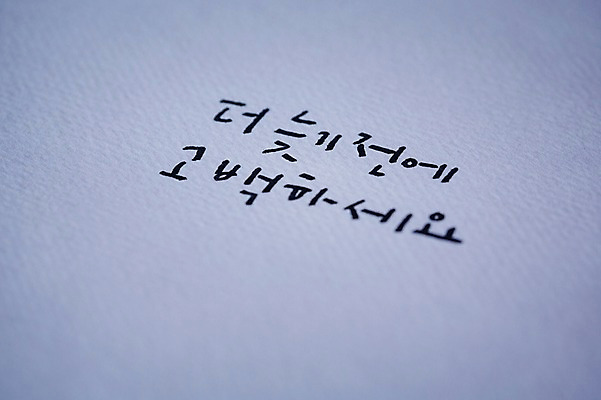 더 늦기 전에
고백하세요